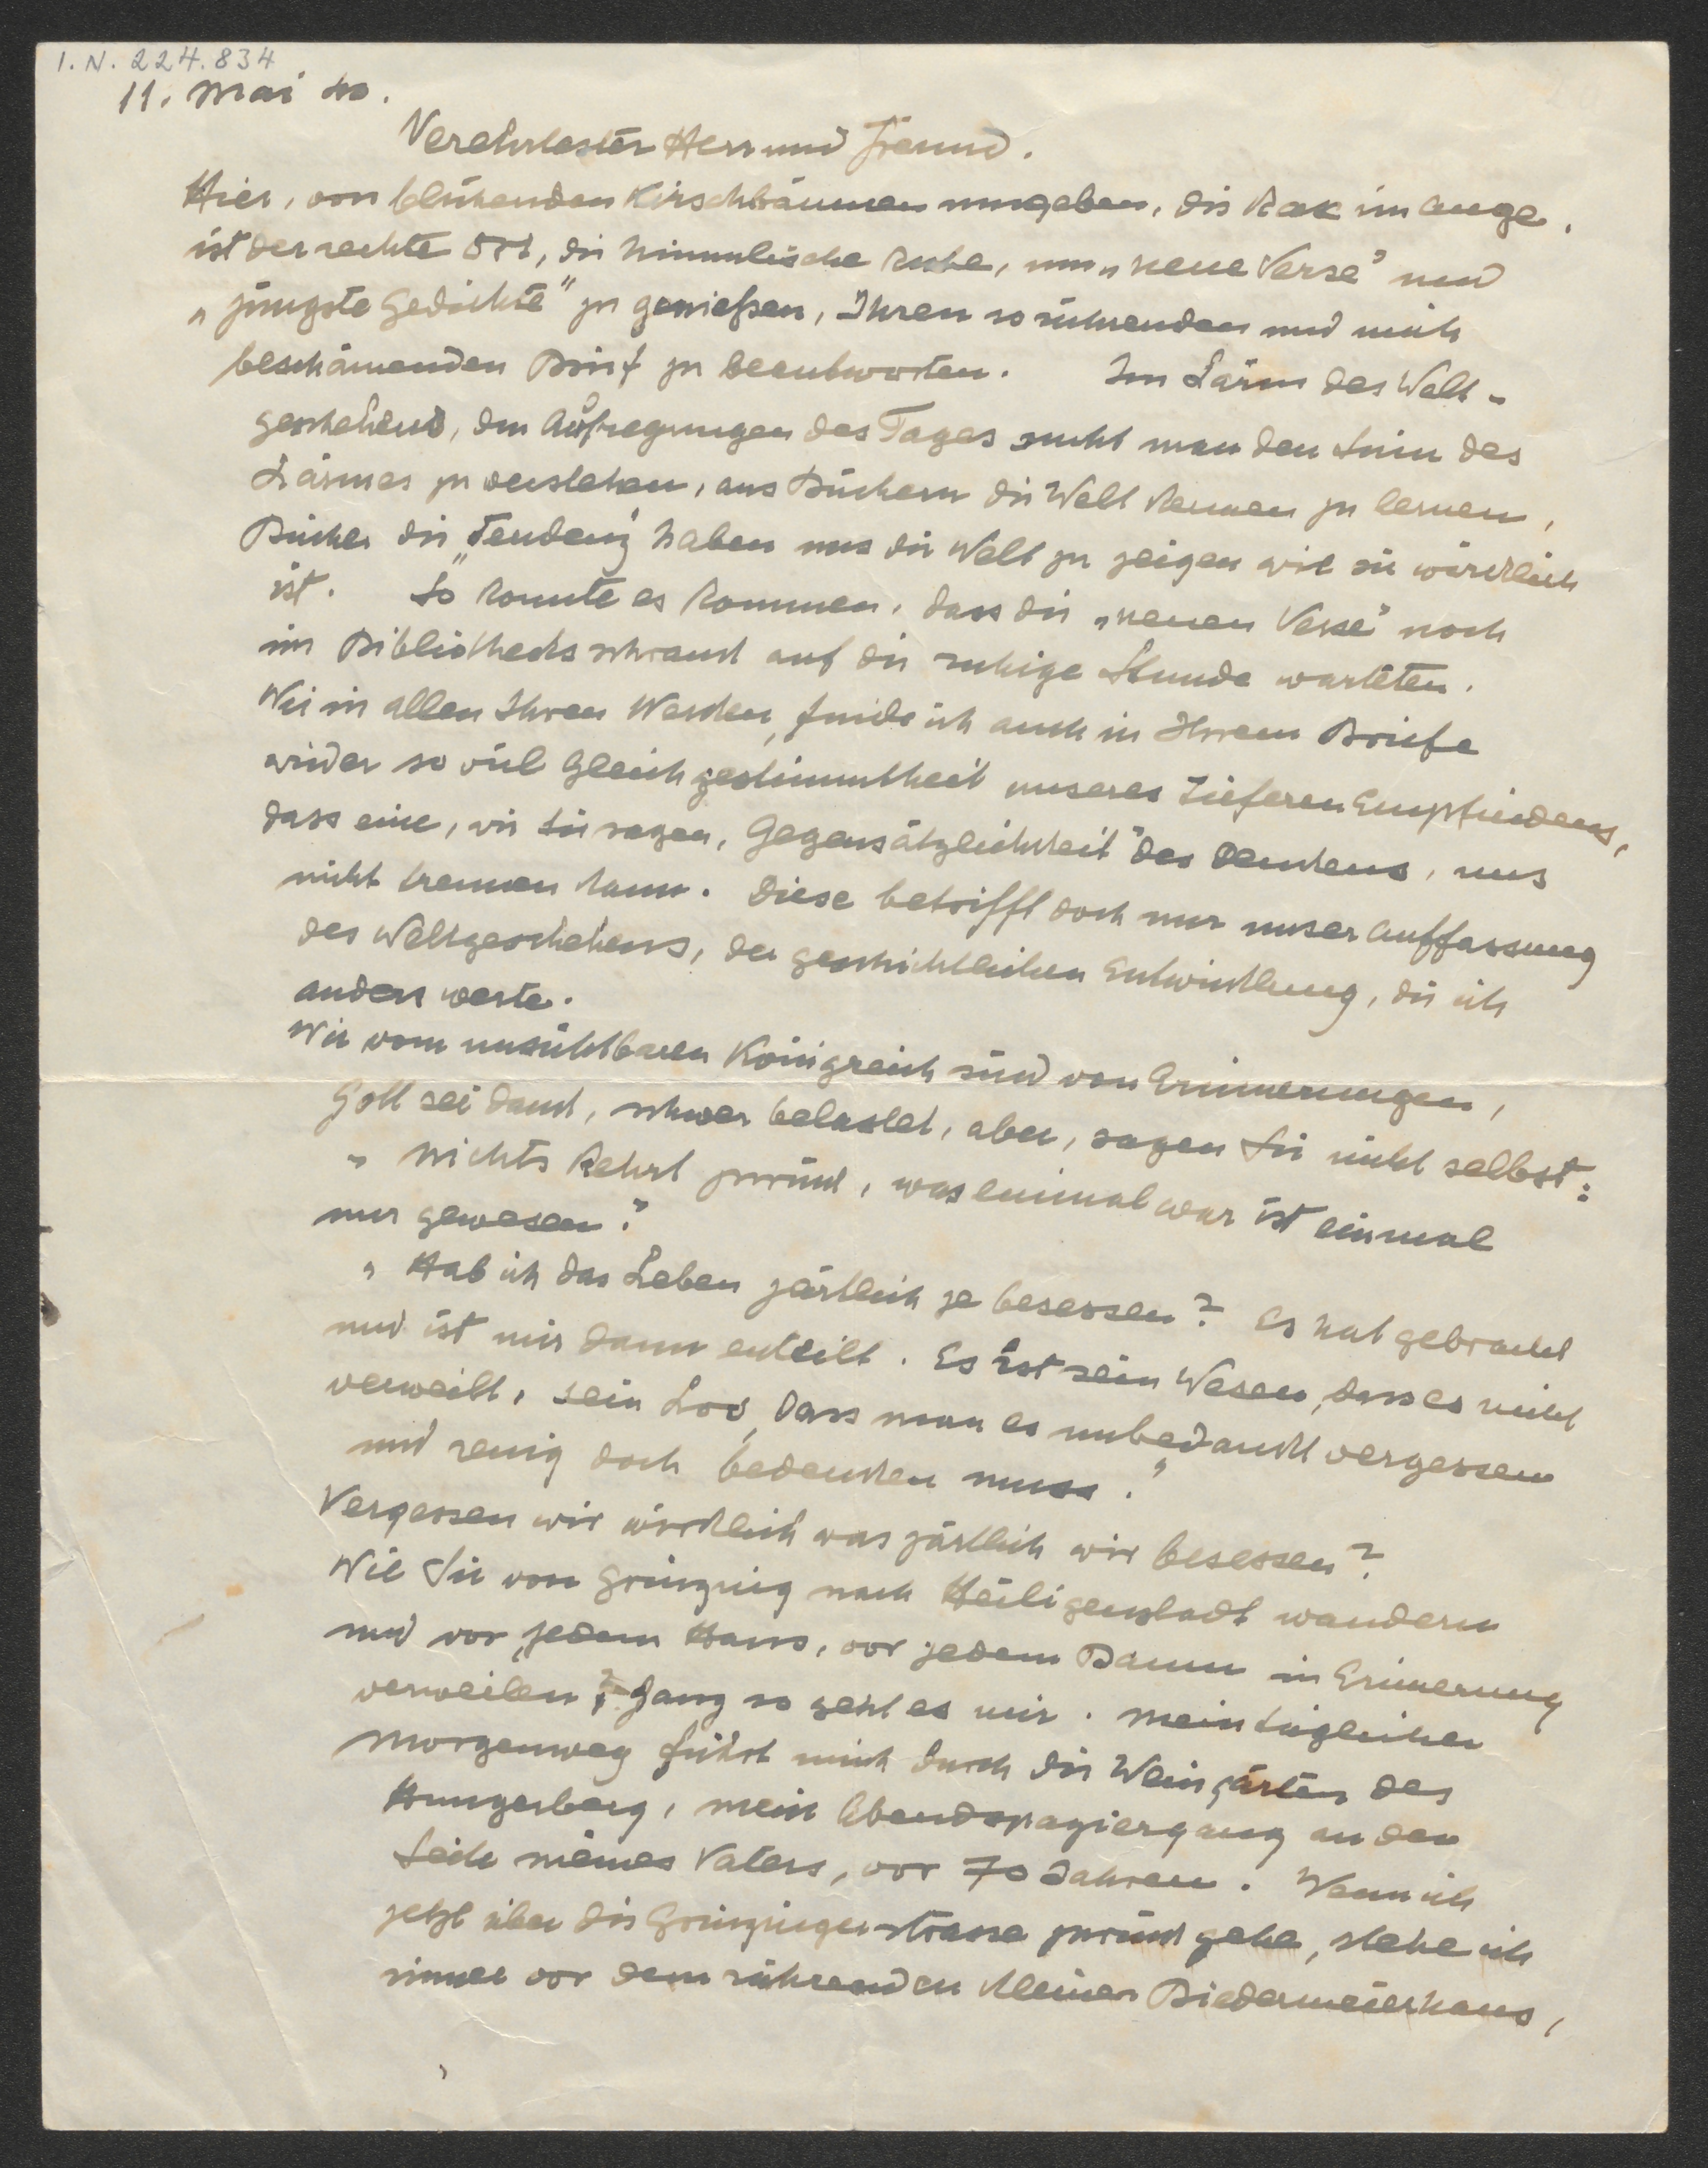 I.N. 224.834
11. Mai 40.
Verehrtester Herr und Freund.
Hier, von blühenden Kirschbäumen umgeben, die Rax im Auge,
ist der rechte Ort, die himmlische Ruhe, um „neue Verse" und
„jüngste Gedichte" zu genießen, Ihren so rührenden und mich
beschämenden Brief zu beantworten. Im Lärm des Welt-
geschehens, den Aufregungen des Tages sucht man den Sinn des
Lärmes zu verstehen, aus Büchern die Welt kennen zu lernen,
Bücher die „Tendenz" haben uns die Welt zu zeigen wie sie wirklich
ist. So konnte es kommen, dass die „neuen Verse" noch
im Bibliotheksschrank auf die ruhige Stunde warteten.
Wie in allen Ihren Werken, finde ich auch in Ihrem Briefe
wider so viel Gleichgestimmtheit unseres tieferen Empfindens,
dass eine, wie Sie sagen, Gegensätzlichkeit" des Denkens, uns
nicht trennen kann. Diese betrifft doch nur unser Auffassung
des Weltgeschehens, der geschichtlichen Entwicklung, die ich
anders werte.
Wir vom unsichtbaren Königreich sind von Erinnerungen,
Gott sei Dank, schwer belastet, aber, sagen Sie nicht selbst:
„Nichts kehrt zurück, was einmal war ist einmal
nur gewesen"?
„Hab ich das Leben zärtlich je besessen? Es hat gebracht
und ist mir dann enteilt. Es ist sein Wesen, dass es nicht
verweilt, sein Los, dass man es unbedankt vergessen
und reuig doch bedenken muss."
Vergessen wir wirklich was zärtlich wir besessen?
Wie Sie von Grinzing nach Heiligenstadt wandern
und vor jedem Haus, vor jedem Baum in Erinnerung
verweilen, ganz so geht es mir. Mein täglicher
Morgenweg führt mich durch die Weingärten des
Hungerberg, mein Abendspaziergang an der
Seite meines Vaters, vor 70 Jahren. Wenn ich
jetzt über die Grinzingerstrasse zurück gehe, stehe ich
immer vor dem rührenden kleinen Biedermeierhaus,